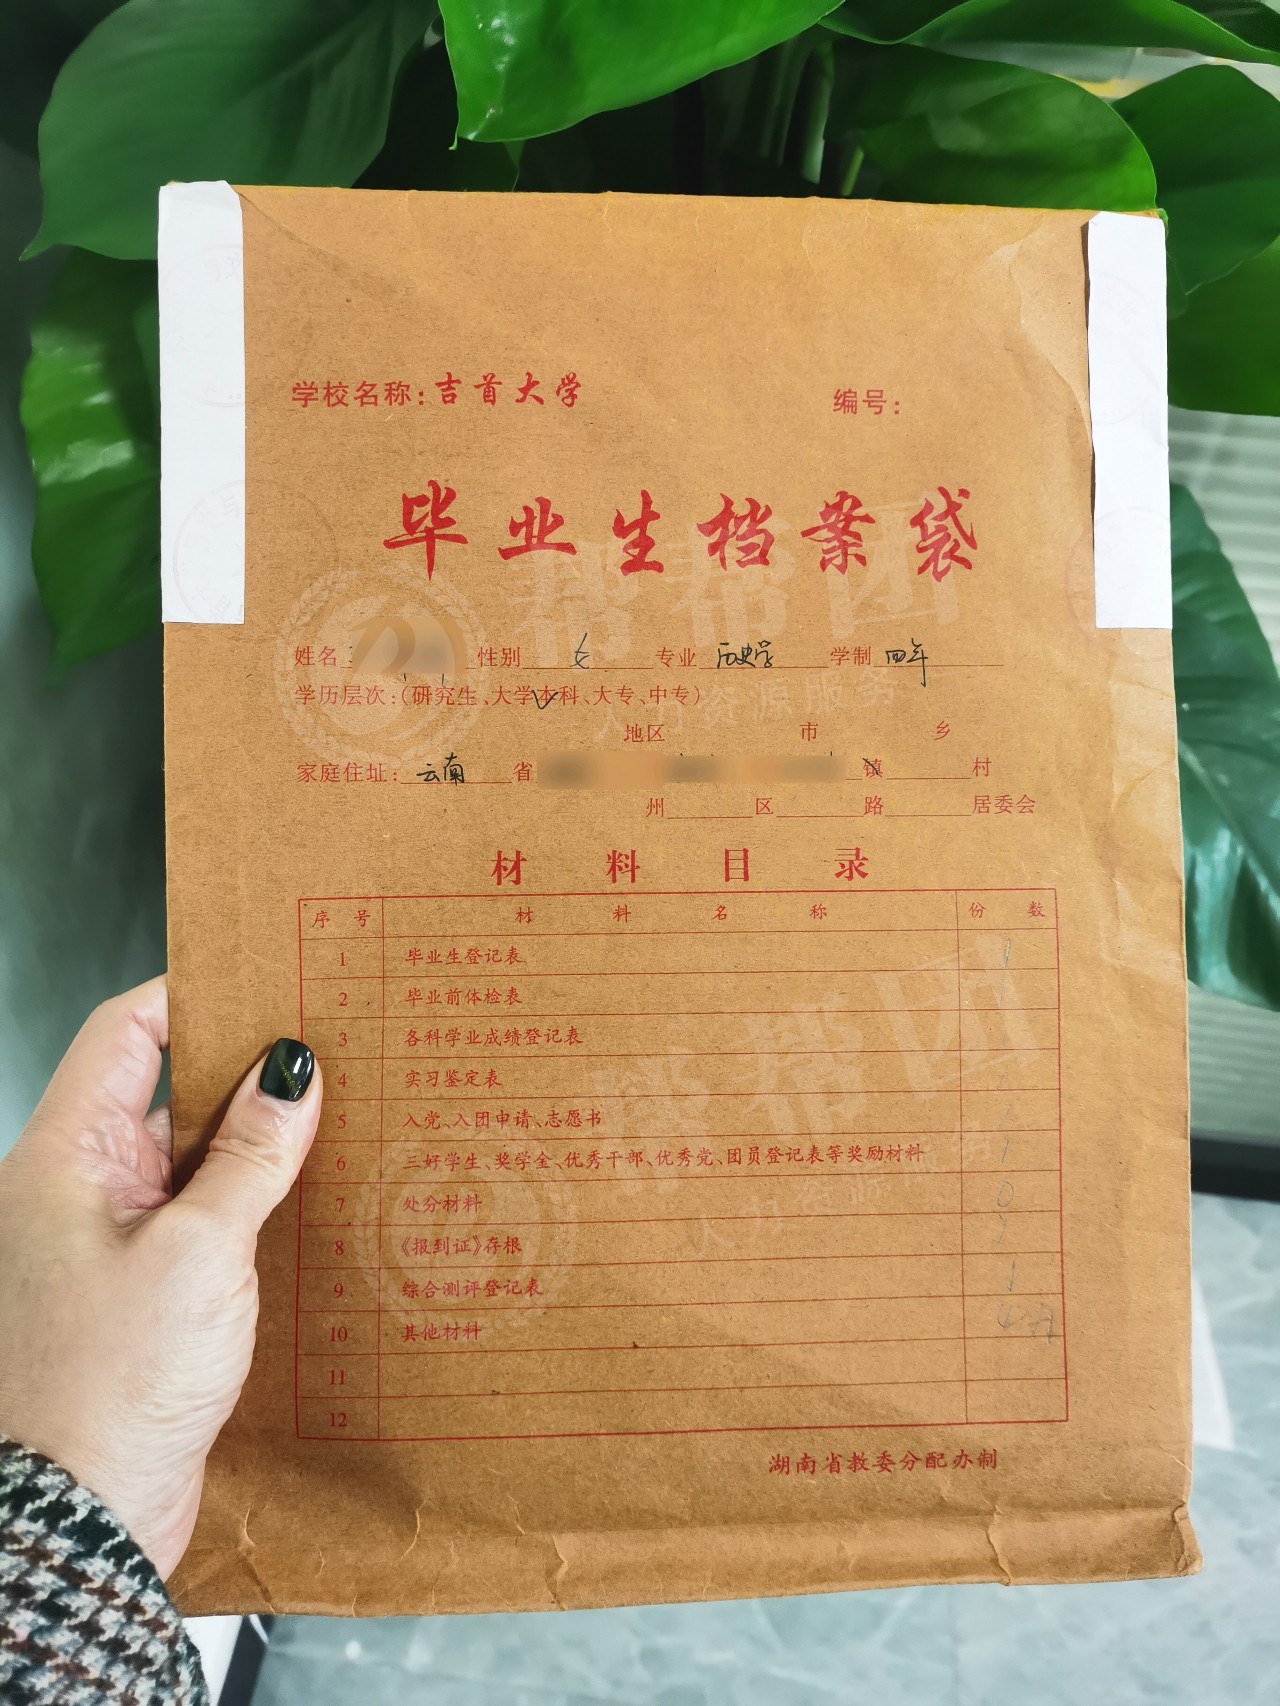 学校名称：吉首大学 编号：
毕业生档案袋
帮帮团
人力资源服务
姓名 性别 女 专业 历史学 学制 四年
学历层次：（研究生、大学本科、大专、中专）
地区 市 乡
家庭住址： 云南 省 镇 村
州 区 路 居委会
材料目录
序号 材料名称 份数
1 毕业生登记表 1
2 毕业前体检表 1
3 各科学业成绩登记表
4 实习鉴定表
5 入党、入团申请、志愿书
6 三好学生、奖学金、优秀干部、优秀党、团员登记表等奖励材料 1
7 处分材料 0
8 《报到证》存根
9 综合测评登记表 1
10 其他材料 4
11
12
帮帮团
人力资源服务
湖南省教委分配办制